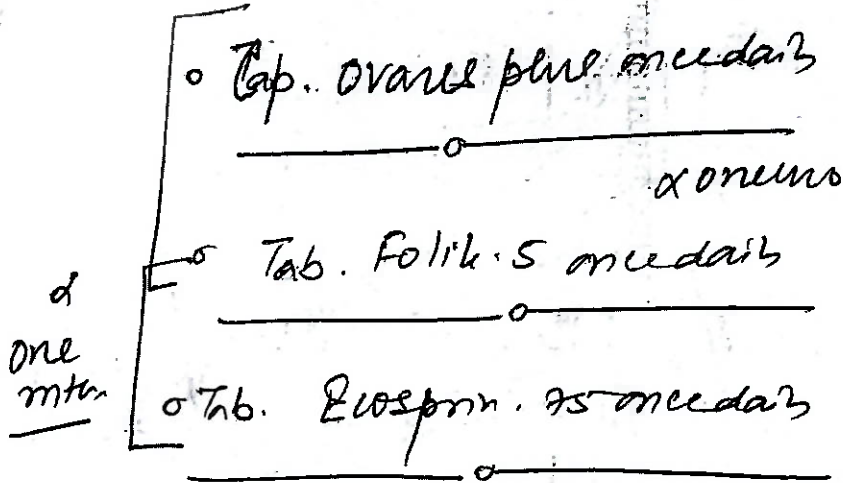 Cap. Ovares plus once daily
Tab. Folik. 5 once daily
x one mth
Tab. Ecosprin. 75 once daily